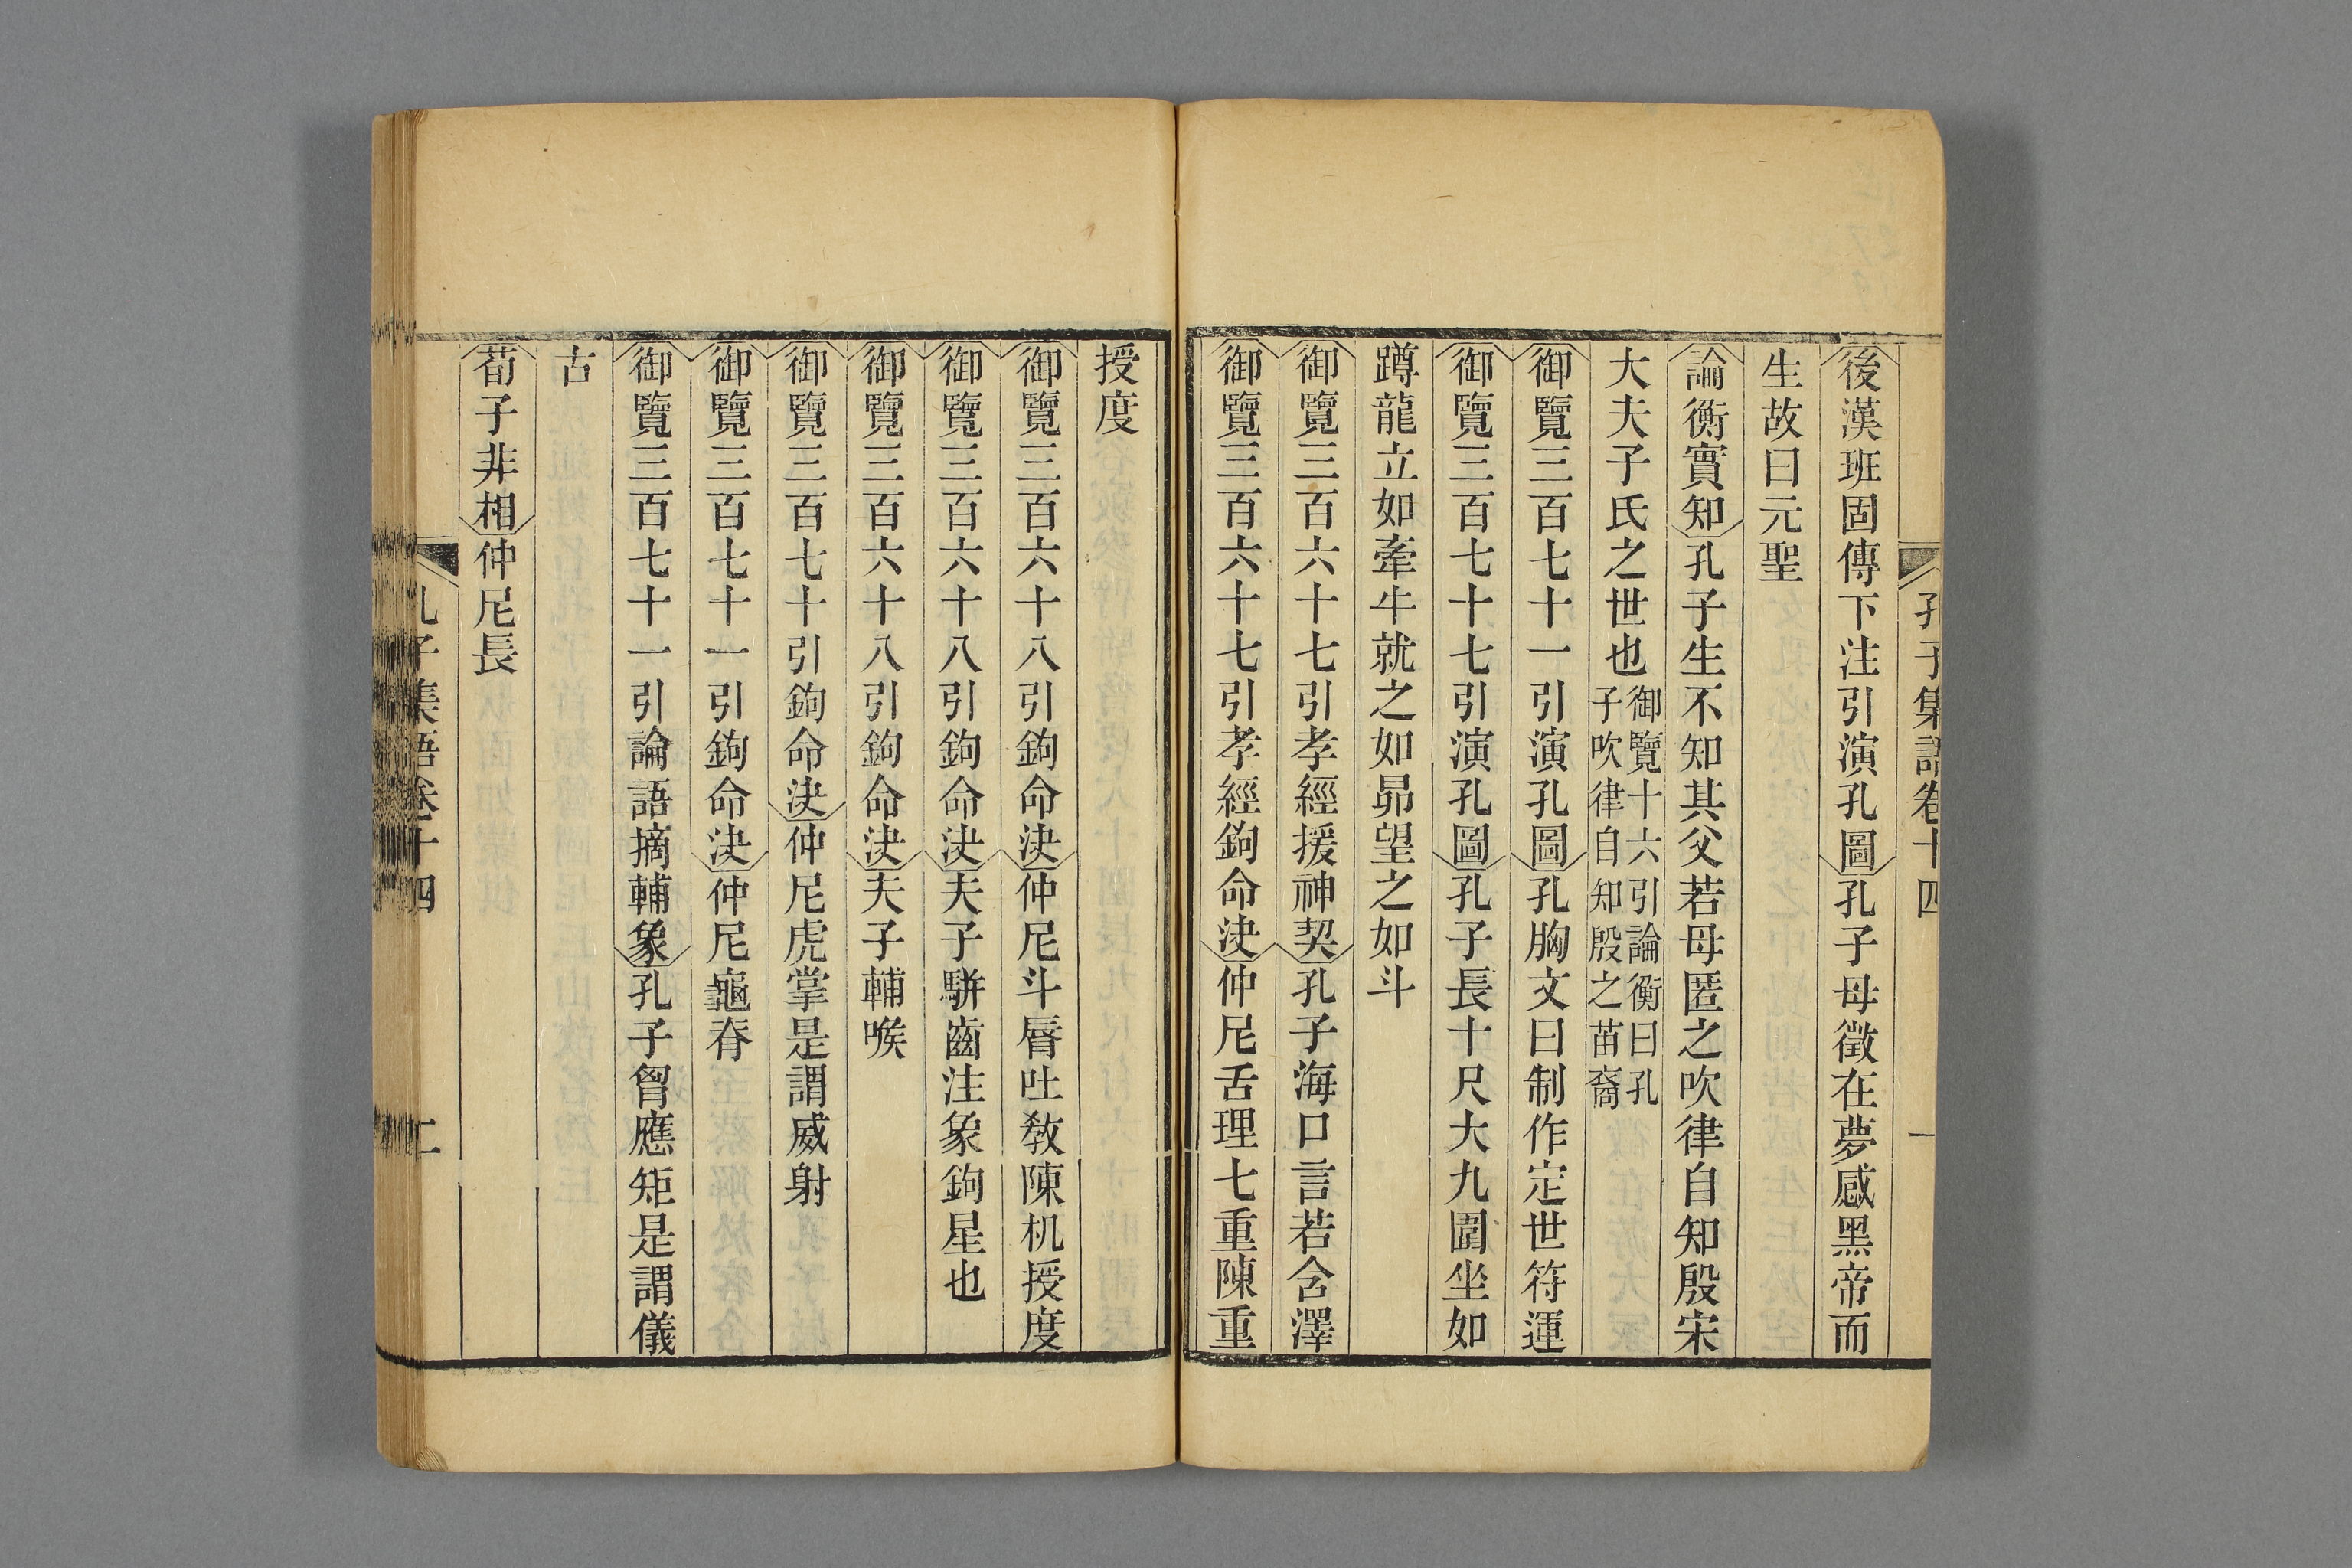 孔子集語卷十四 一
後漢班固傳下注引演孔圖孔子母徵在夢感黑帝而
生故曰元聖
論衡實知孔子生不知其父若母匿之吹律自知殷宋
大夫子氏之世也御覽十六引論衡曰孔
子吹律自知殷之苗裔
御覽三百七十一引演孔圖孔胸文曰制作定世符運
御覽三百七十七引演孔圖孔子長十尺大九圍坐如
蹲龍立如牽牛就之如昴望之如斗
御覽三百六十七引孝經援神契孔子海口言若含澤
御覽三百六十七引孝經鉤命決仲尼舌理七重陳重
授度
御覽三百六十八引鉤命決仲尼斗脣吐敎陳机授度
御覽三百六十八引鉤命決夫子駢齒注象鉤星也
御覽三百六十八引鉤命決夫子輔喉
御覽三百七十引鉤命決仲尼虎掌是謂威射
御覽三百七十一引鉤命決仲尼龜脊
御覽三百七十一引論語摘輔象孔子胷應矩是謂儀
古
荀子非相仲尼長
孔子集語卷十四 二